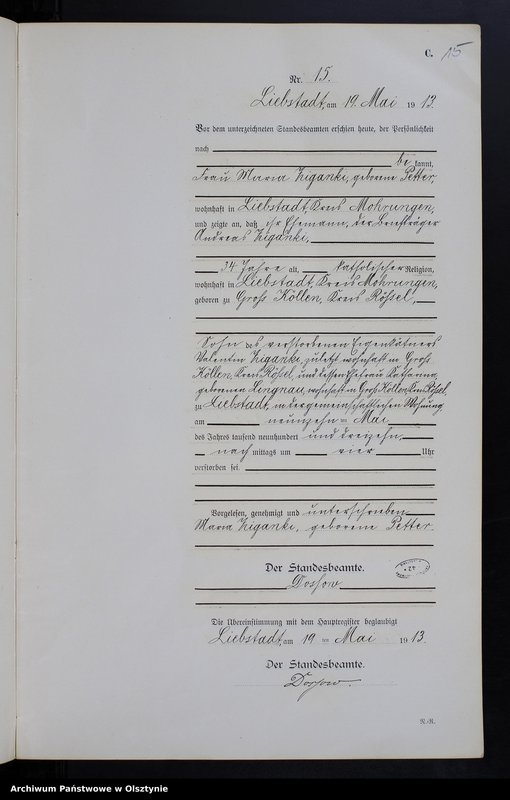 C. 15
Nr. 15.
Liebstadt, am 19. Mai 1913.
Vor dem unterzeichneten Standesbeamten erschien heute, der Persönlichkeit
nach
be kannt,
Frau Maria Ziganki, geborene Petter,
wohnhaft in Liebstadt, Kreis Mohrungen,
und zeigte an, daß ihr Ehemann, der Briefträger
Andreas Ziganki,
34 Jahre alt, katholischer Religion,
wohnhaft in Liebstadt, Kreis Mohrungen,
geboren zu Groß Köllen, Kreis Rößel,
Sohn des verstorbenen Eigenkätners
Valentin Ziganki, zuletzt wohnhaft in Groß
Köllen, Kreis Rößel, und dessen Ehefrau Katharina,
geborenen Longnau, wohnhaft in Groß Köllen, Kreis Rößel,
zu Liebstadt, in der gemeinschaftlichen Wohnung
am neunzehnten Mai
des Jahres tausend neunhundert und dreizehn,
nach mittags um vier Uhr
verstorben sei.
Vorgelesen, genehmigt und unterschrieben
Maria Ziganki, geborene Petter.
Der Standesbeamte.
Dossow
Die Übereinstimmung mit dem Hauptregister beglaubigt
Liebstadt, am 19 ten Mai 1913.
Der Standesbeamte.
Dossow.
N.-R.
Archiwum Państwowe w Olsztynie